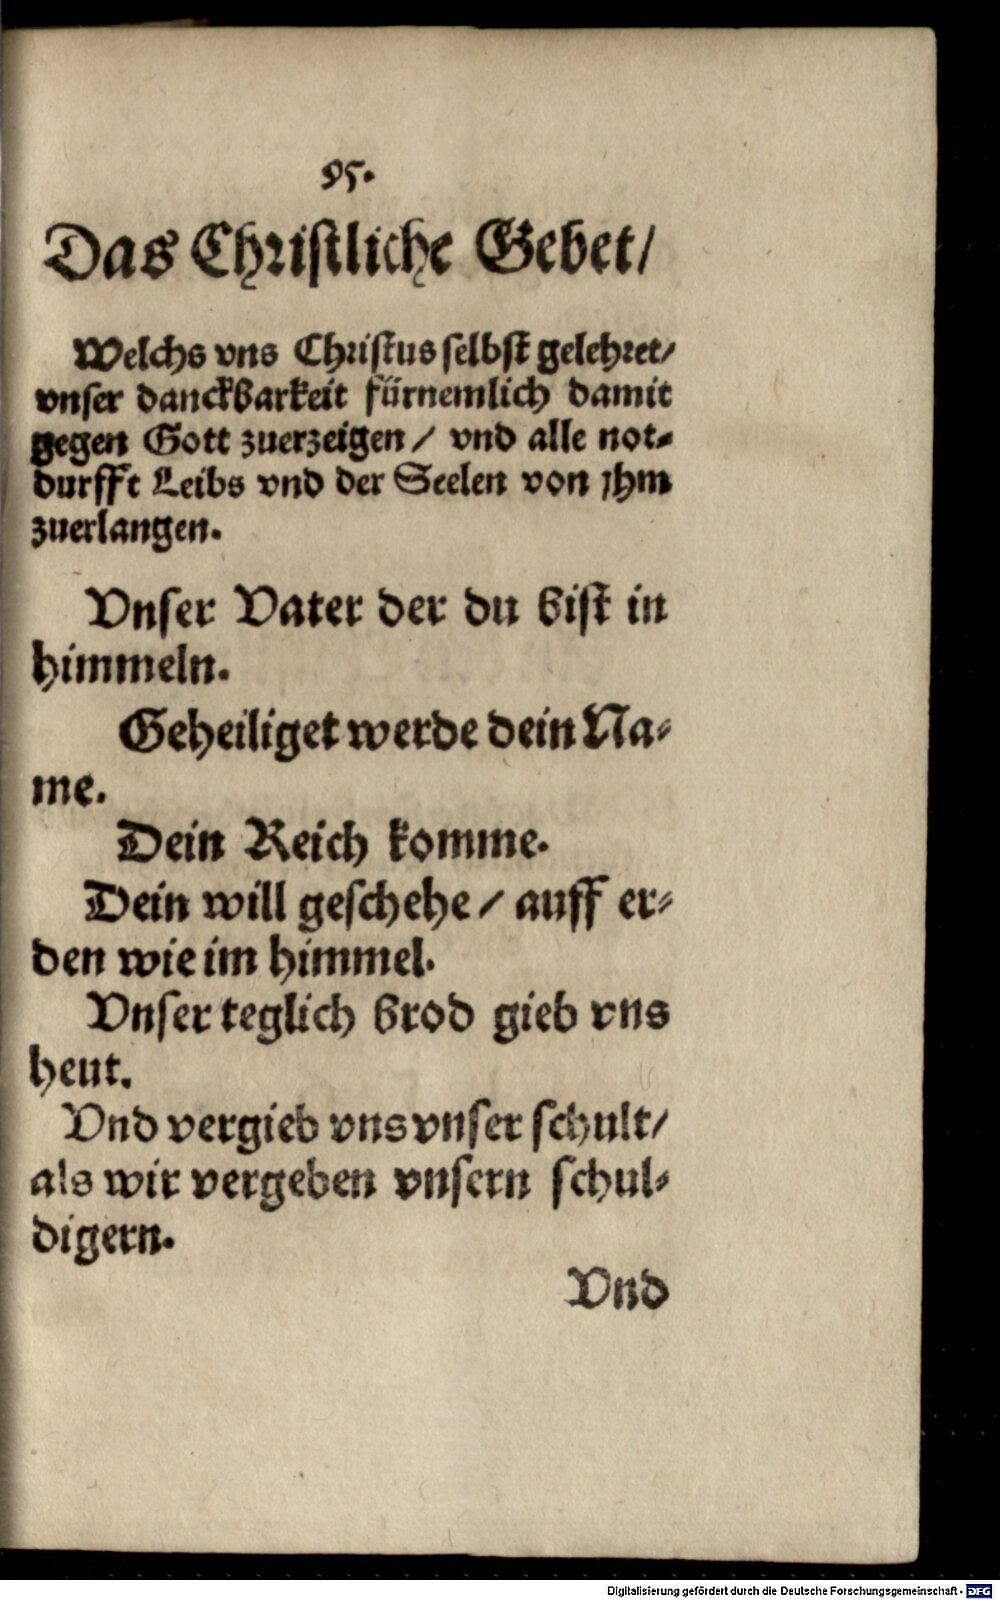 95.
Das Christliche Gebet/
Welchs vns Christus selbst gelehret/
vnser danckbarkeit fürnemlich damit
gegen Gott zuerzeigen / vnd alle not⸗
durfft Leibs vnd der Seelen von jhm
zuerlangen.
Vnser Vater der du bist in
himmeln.
Geheiliget werde dein Na⸗
me.
Dein Reich komme.
Dein will geschehe / auff er⸗
den wie im himmel.
Vnser teglich brod gieb vns
heut.
Vnd vergieb vns vnser schult/
als wir vergeben vnsern schul⸗
digern.
Vnd
Digitalisierung gefördert durch die Deutsche Forschungsgemeinschaft - DFG